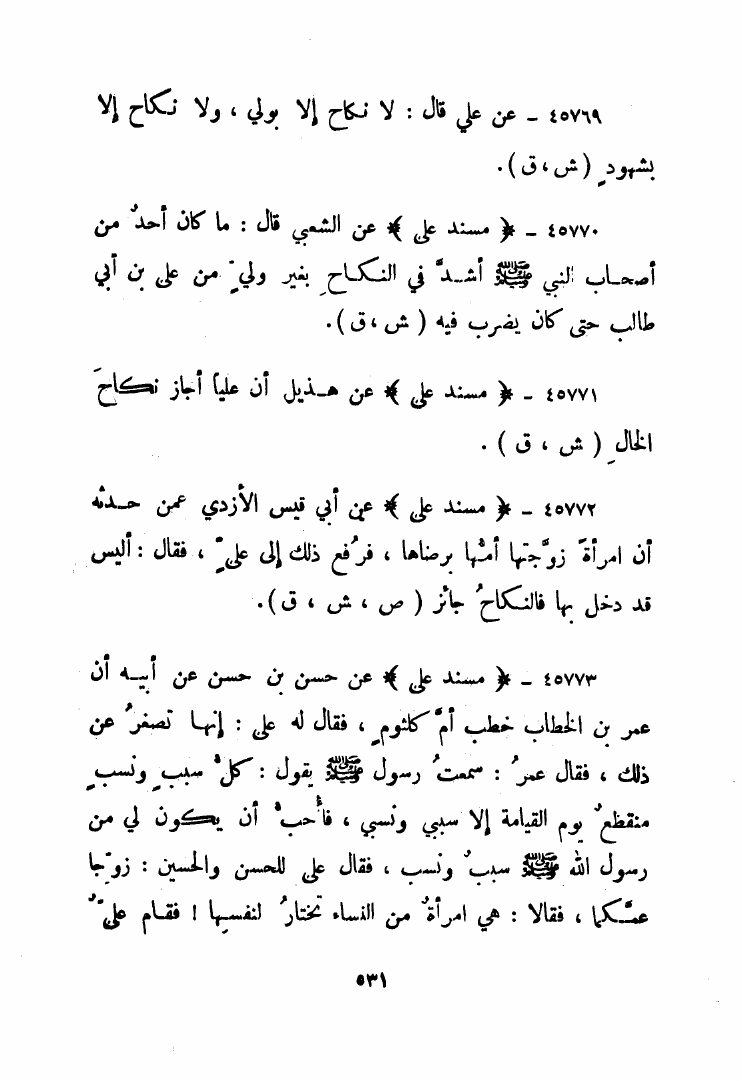 ٤٥٧٦٩ - عن علي قال : لا نكاح إلا بولي ، ولا نكاح إلا
بشهودٍ ( ش ، ق ) .
٤٥٧٧٠ - ﴿ مسند على ﴾ عن الشعبي قال : ما كان أحدٌ من
أصحاب النبي ﷺ أشدَّ في النكاحِ بغير وليٍّ من على بن أبي
طالب حتى كان يضرب فيه ( ش ، ق ) .
٤٥٧٧١ - ﴿ مسند على ﴾ عن هذيل أن علياً أجاز نكاحَ
الخالِ ( ش ، ق ) .
٤٥٧٧٢ - ﴿ مسند على ﴾ عن أبي قيس الأزدي عمن حدثه
أن امرأةً زوَّجتها أمُّها برضاها ، فرُفع ذلك إلى عليٍّ ، فقال : أليس
قد دخل بها فالنكاحُ جائز ( ص ، ش ، ق ) .
٤٥٧٧٣ - ﴿ مسند على ﴾ عن حسن بن حسن عن أبيه أن
عمر بن الخطاب خطب أمَّ كلثومٍ ، فقال له على : إنها تصغرُ عن
ذلك ، فقال عمرُ : سمعتُ رسول ﷺ يقول : كلُّ سببٍ ونسبٍ
منقطعٌ يوم القيامة إلا سببي ونسبي ، فأُحبُّ أن يكون لي من
رسول الله ﷺ سببٌ ونسب ، فقال علي للحسن والحسين : زوِّجا
عمَّكما ، فقالا : هي امرأةٌ من النساء تختارُ لنفسِها ! فقام عليٌّ
٥٣١